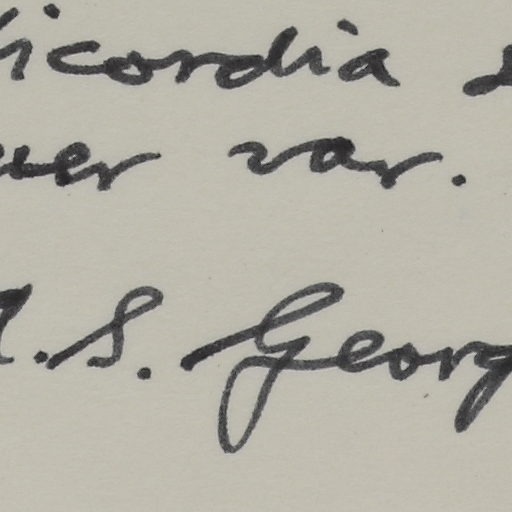 icordia
er var.
A.S. Georg